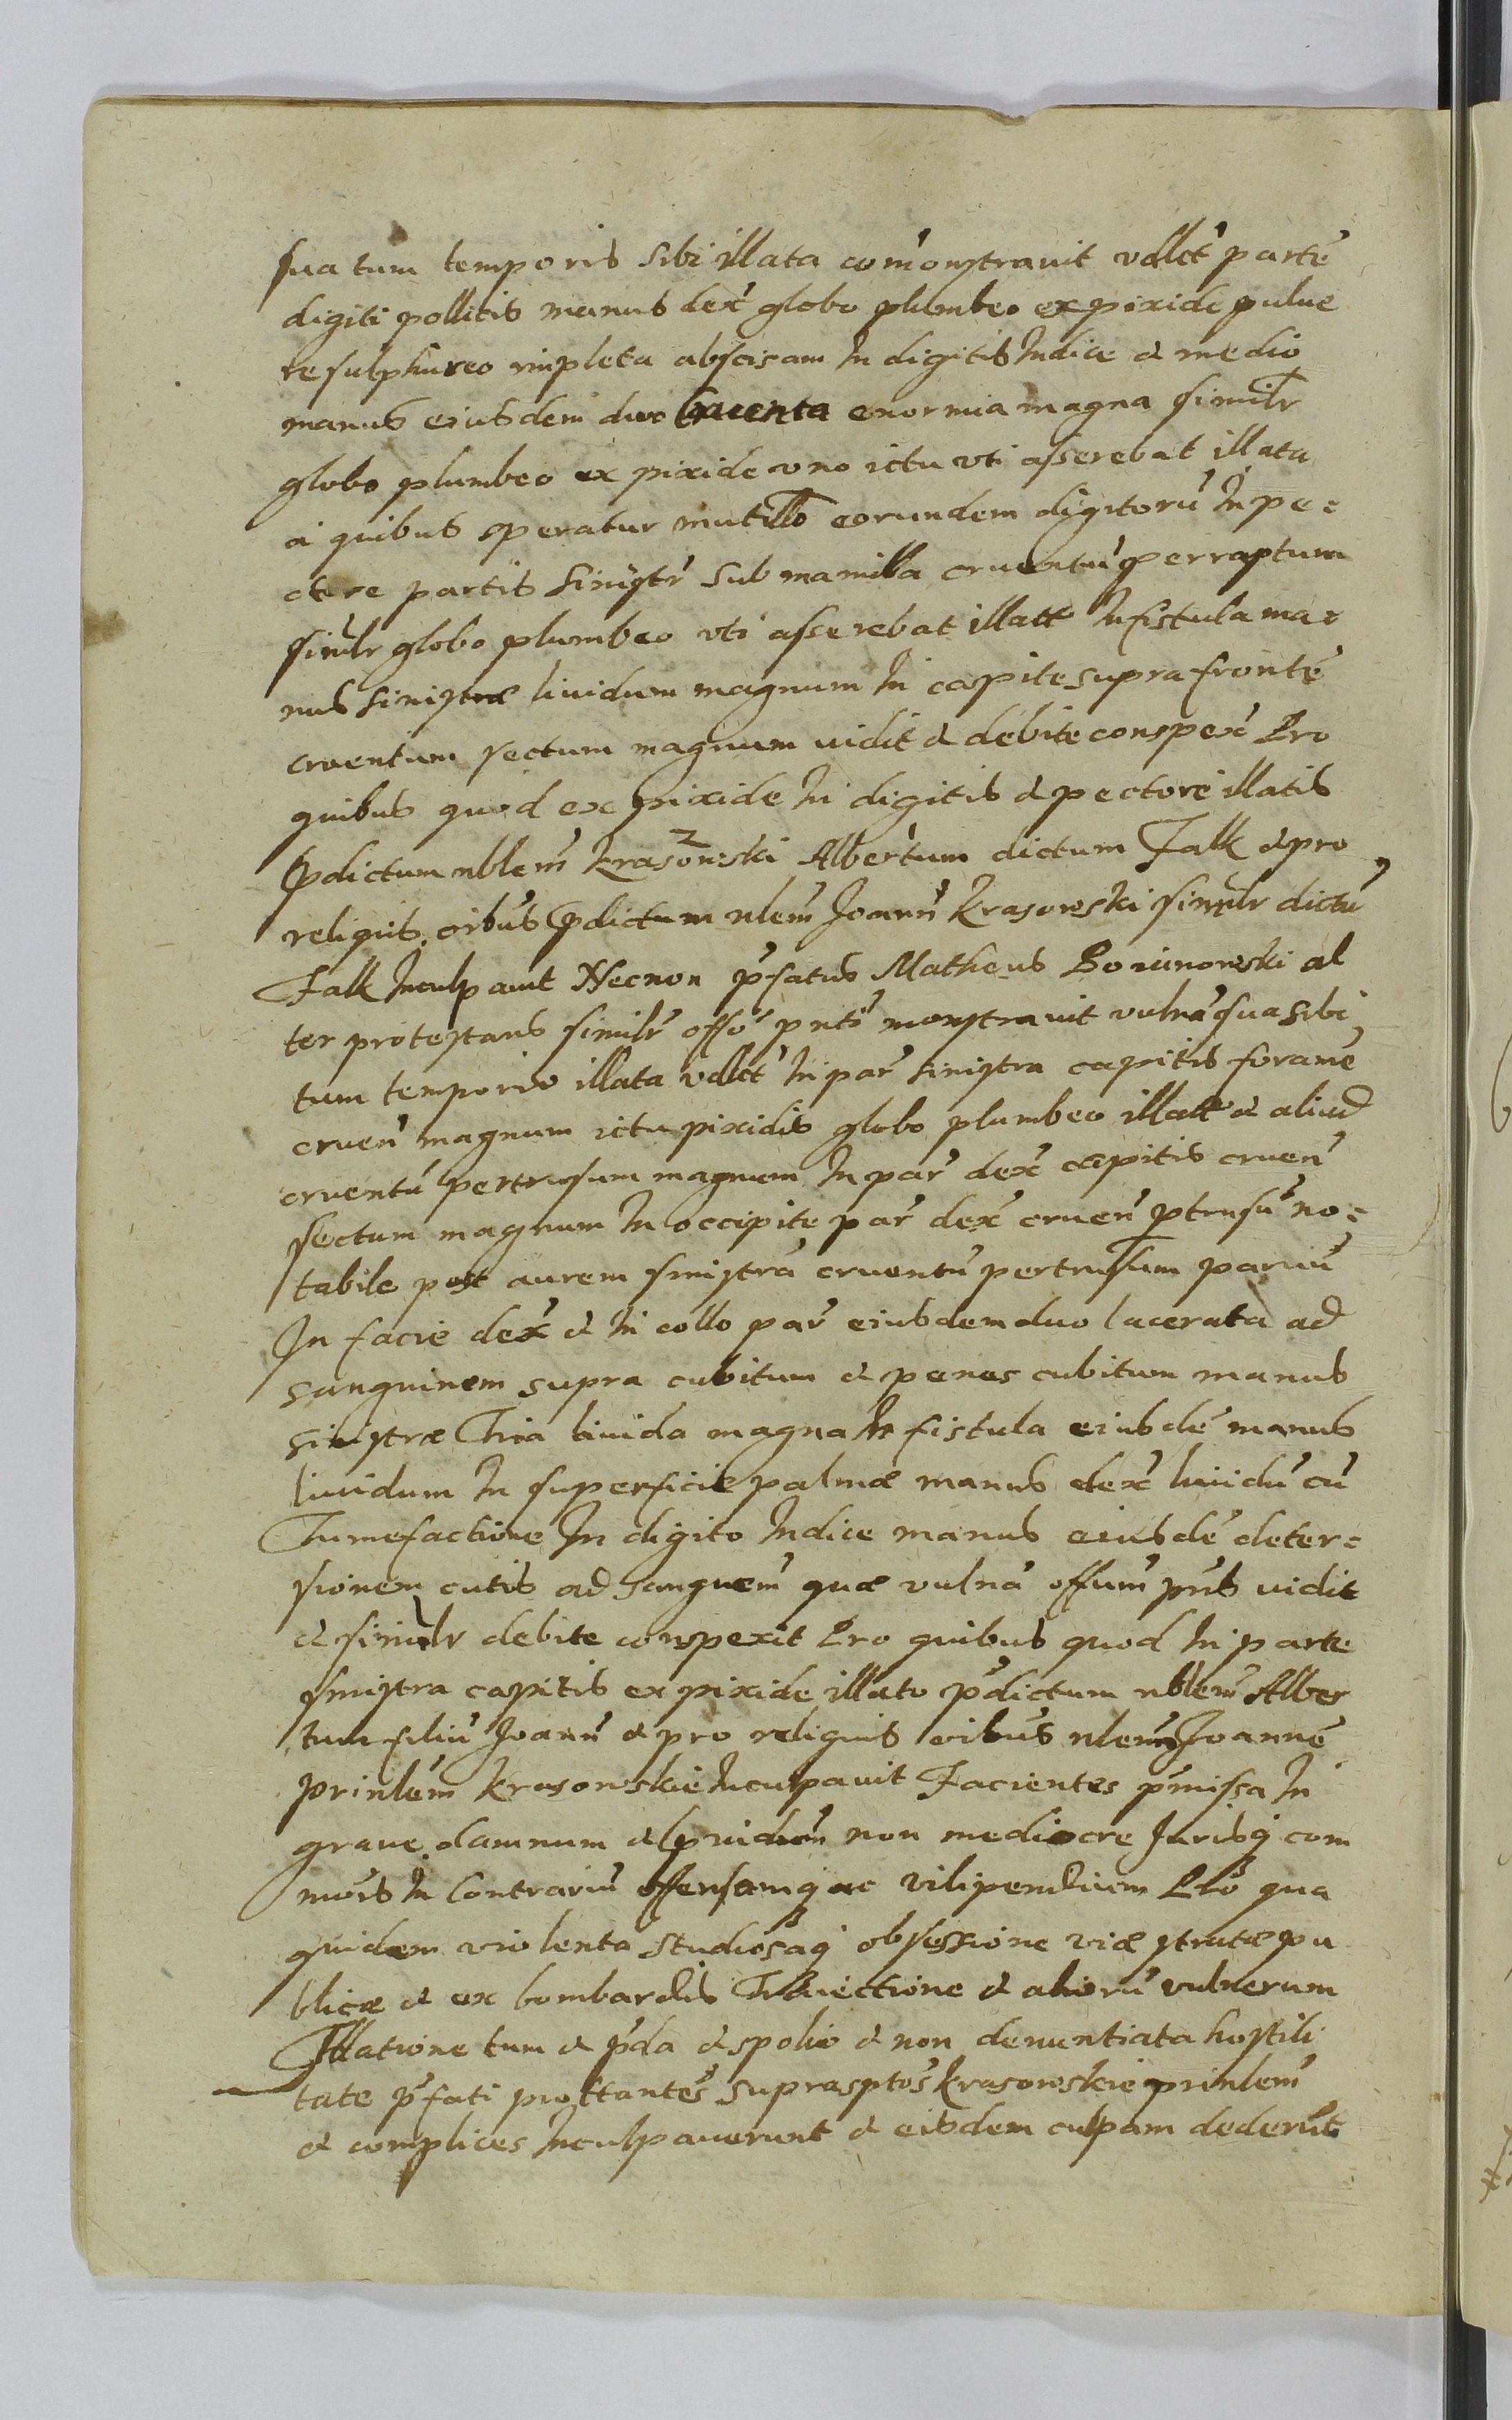 sua tum temporis sibi illata com̃onstrauit vdlct̃ partẽ
digiti pollicis manus dex̃ globo plumbeo ex pixide pulue
re sulphureo impleta abscisam In digitis Indice et medio
manus eiusdem duo cruenta enormia magna similr̃
globo plumbeo ex pixide uno ictu vti asserebat illata
a quibus speratur mutillõ eorundem digitorũ In pe=
ctore partis sinistr̃ sub mamilla cruentũ perraptum
similr̃ globo plumbeo vti asserebat illatt In fistula ma=
nus sinistræ liuidum magnum In capite supra frontẽ
cruentum sectum magnum uidit et debite conspex̃ Pro
quibus quod ex pixide In digitis et pectore illatis
p̃dictum nblem̃ Krasowski Albertum dictum Falk et pro
reliquis oibus p̃dictum nlem̃ Joann̄ Krasowski similr̃ dictũ
Falk Inculpauit Necnon p̃fatus Matheus al
ter protestans similr̃ offõ pnti monstrauit vulnã sua sibi
tum temporis illata vdlct̃ In par̃ sinistra capitis foramẽ
cruen̄ magnum ictu pixidis globo plumbeo illatt et aliud
cruentũ pertrusum magnum In par̃ dex̃ capitis cruen̄
sectum magnum In occipite par̃ dex̃ cruen̄ ptrusũ no=
tabile post aurem sinistrã cruentũ pertrusum paruũ
In facie dex̃ et In collo par̃ eiusdem duo lacerata ad
sanguinem supra cubitum et penes cubitum manus
sinistræ Tria liuida magna In fistula eiusdẽ manus
liuidum In superficie palmæ manus dex̃ liuidũ cũ
Tumefactione In digito Indice manus eiusdẽ deter=
sionem cutis ad sanguem̃ quæ vulnã offium̃ pñs uidit
et similr̃ debite conspexit Pro quibus quod In parte
sinistra capitis ex pixide illato p̃dictum nblem̃ Alber
tum filiũ Joann̄ et pro reliquis oibus nlem̃ Joannẽ
prinlem̃ Krasowskie Inculpauit Facientes p̃missa In
graue damnum et non mediocre Jurisq̃ com
mũis In Contrariũ offensamq̃ ac vilipendium Pro qua
quidem violenta studiosaq̃ obsessione viæ stratæ pu
blicæ et ex bombardis Traiectione et aliorũ vulnerum
Illatione tum et p̃da et spolio et non denuntiata hostili
tate p̃fati prottantes suprasptos̃ Krasowskie prinlem̃
et complices Inculpauerunt et eisdem culpam dederũt